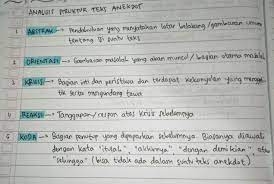 ANALISIS STRUKTUR TEKS ANEKDOT
1 ABSTRAK → Pendahuluan yang menyatakan latar belakang/gambaran umum
tentang isi suatu teks
2 ORIENTASI → Gambaran masalah yang akan muncul / bagian utama masalah
3 KRISIS → Bagian inti dari peristiwa dan terdapat kekonyolan yang
serta mengundang tawa
4 REAKSI → Tanggapan/respon atas krisis sebelumnya
5 KODA → Bagian penutup yang dipaparkan sebelumnya. Biasanya diawali
dengan kata "itulah", "akhirnya", "dengan demikian", atau
"sehingga" (bisa tidak ada dalam suatu teks anekdot)